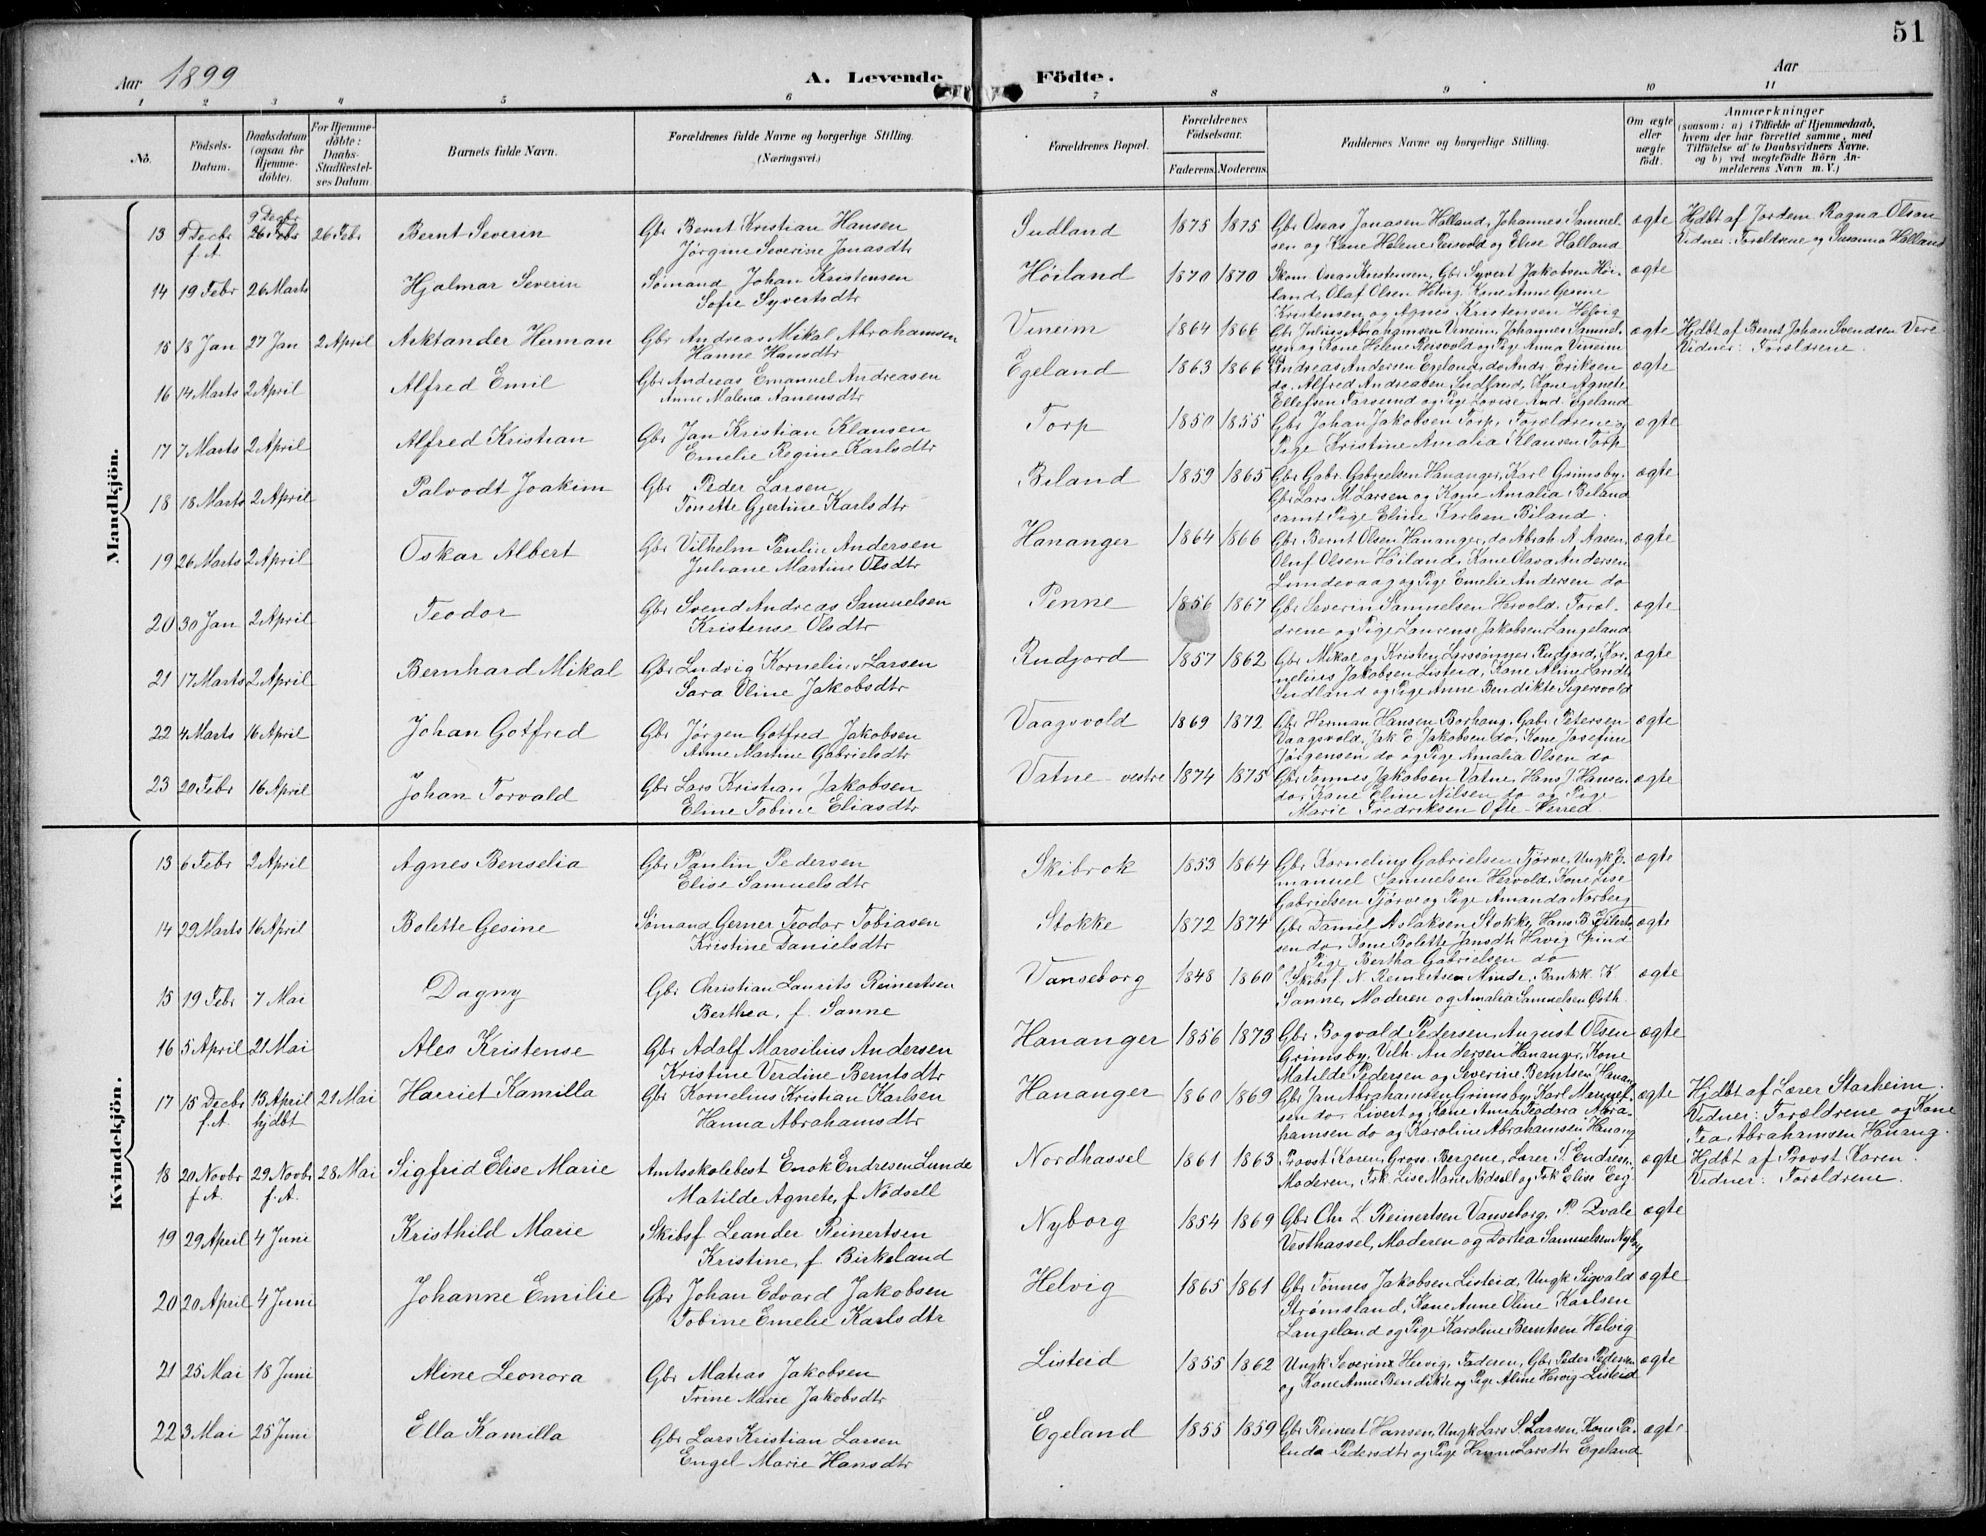 51
Aar 1899
A. Levende Födte.
Aar
1 2 3 4 5 6 7 8 9 10 11
No.
Födsels-Datum.
Daabsdatum (ogsaa for Hjemme-döbte).
For Hjemme-döbte: Daabs-Stadfæstel-ses Datum
Barnets fulde Navn.
Forældrenes fulde Navne og borgerlige Stilling. (Næringsvei.)
Forældrenes Bopæl.
Forældrenes Födselsaar.
Faderens. Moderens.
Faddernes Navne og borgerlige Stilling.
Om ægte eller uægte födt.
Anmærkninger
(saasom: a) i Tilfælde af Hjemmedaab, hvem der har forrettet samme, med Tilföielse af to Daabsvidners Navne. og b) ved uægtefödte Börn An-melderens Navn m. V.)
Mandkjön.
13 9 Decbr f. A. 9 Decbr 26 Febr 26 Febr Bernt Severin Gbr Bernt Kristian Hansen
Jörgine Severine Jonasdtr
Sudland 1875 1875 Gbr Oseas Jonasen Halland, Johannes Samuel-
sen og Kone Helene Resvold og Elise Halland
ægte Hjdbt af Jordem Ragna Olsen
Vidner: Forældrene og Susanna Halland
14 19 Febr 26 Marts Hjalmar Severin Sömand Johan Kristensen
Sofie Syvertsdtr
Höiland 1870 1870 Skom Oseas Kristensen, Gbr Syvert Jakobsen Höi-
land, Olaf Olsen Helvig, Kone Anne Gesine
Kristensen og Agnes Kristensen Helvig
ægte
15 18 Jan 27 Jan 2 April Arktander Herman Gbr Andreas Mikal Abrahamsen
Hanne Hansdtr
Vineim 1864 1866 Gbr Julius Abrahamsen Vineim, Johannes Samuel-
sen og Kone Helene Resvold og Pige Anna Vineim
ægte Hjdbt af Bernt Johan Svendsen Vere
Vidner: Forældrene
16 14 Marts 2 April Alfred Emil Gbr Andreas Emanuel Andreasen
Anne Malena Aanensdtr
Egeland 1863 1866 Gbr Andreas Andersen Egeland, do Andr. Eriksen
do. Alfred Andreasen Sudland, Kone Agnete
Ellefsen Farsund og Pige Lovise And. Egeland
ægte
17 7 Marts 2 April Alfred Kristian Gbr Jan Kristian Klausen
Emelie Regine Karlsdtr
Torp 1850 1855 Gbr Johan Jakobsen Torp, Forældrene og
Pige Kristine Amalia Klausen Torp
ægte
18 18 Marts 2 April Palvodt Joakim Gbr Peder Larsen
Tonette Gjertine Karlsdtr
Biland 1859 1865 Gbr Gabr. Gabrielsen Hananger, Karl Grimsby
Gbr Lars M Larsen og Kone Amalia Biland
samt Pige Eline Karlsen Biland
ægte
19 26 Marts 2 April Oskar Albert Gbr Vilhelm Paulin Andersen
Juliane Martine Olsdtr
Hananger 1864 1866 Gbr Bernt Olsen Hananger, do Abrah. A. Aasen,
Oluf Olsen Höiland, Kone Olava Andersen
Lundevaag og Pige Emelie Andersen do
ægte
20 30 Jan 2 April Teodor Gbr Svend Andreas Samuelsen
Kristense Olsdtr
Penne 1856 1867 Gbr Severin Samuelsen Hervold, Foræl-
drene og Pige Laurense Jakobsen Langeland
ægte
21 17 Marts 2 April Bernhard Mikal Gbr Ludvig Kornelius Larsen
Sara Oline Jakobsdtr
Rudjord 1857 1862 Gbr Mikal og Kristen Larssönner Rudjord, Kor-
nelius Jakobsen Listeid, Kone Aline Larsdtr
Sudland og Pige Anne Bendikte Sigersvold
ægte
22 4 Marts 16 April Johan Gotfred Gbr Jörgen Gotfred Jakobsen
Anne Martine Gabrielsdtr
Vaagsvold 1869 1872 Gbr Herman Hansen Borhaug, Gabr. Petersen
Vaagsvold, Jak E Jakobsen do, Kone Josefine
Jörgensen do og Pige Amalia Olsen do
ægte
23 20 Febr 16 April Johan Torvald Gbr Lars Kristian Jakobsen
Eline Tobine Eliasdtr
Vatne - vestre 1874 1875 Gbr Tönnes Jakobsen Vatne, Hans J Hansen
do, Kone Eline Nilsen do og Pige
Marie Fredriksen Ofte - Herred
ægte
Kvindekjön.
13 6 Febr 2 April Agnes Benselia Gbr Paulin Pedersen
Elise Samuelsdtr
Skibrok 1853 1864 Gbr Kornelius Gabrielsen Tjörve, Ungk E-
manuel Samuelsen Hervold, Kone Lise
Gabrielsen Tjörve og Pige Amanda Norberg
ægte
14 29 Marts 16 April Bolette Gesine Sömand Gerner Teodor Tobiasen
Kristine Danielsdtr
Stokke 1872 1874 Gbr Daniel Aslaksen Stokke, Hans B Eilert-
sen do, Kone Bolette Jansdtr Havig Spind
Pige Bertha Gabrielsen do
ægte
15 19 Febr 7 Mai Dagny Gbr Christian Laurits Reinertsen
Berthea, f. Sanne
Vanseborg 1848 1860 Skibsf N. Reinertsen Minde, Bankk. K
Sanne, Moderen og Amalia Samuelsen Östh.
ægte
16 5 April 21 Mai Ales Kristense Gbr Adolf Marsilius Andersen
Kristine Verdine Berntsdtr
Hananger 1856 1873 Gbr Bogvald Pedersen, August Olsen
Grimsby, Vilh. Andersen Hananger, Kone
Matilde Pedersen og Severine Berntsen Hanang
ægte
17 15 Decbr f. A. 13 April hjdbt 21 Mai Harriet Kamilla Gbr Kornelius Kristian Karlsen
Hanna Abrahamsdtr
Hananger 1860 1869 Gbr Jan Abrahamsen Grimsby, Karl Margref-
sen do, Sivert og Kone Anna Teodora Abra-
hamsen do og Karoline Abrahamsen Hanang
ægte Hjdbt af Lærer Starheim.
Vidner: Forældrene og Kone
Tea Abrahamsen Hanang.
18 20 Novbr f. A. 29 Novbr f. A. 28 Mai Sigfrid Elise Marie Amtsskolebest Enok Endresen Lunde
Matilde Agnete, f Nödsell
Nordhassel 1861 1863 Provst Koren, Gross. Bergene, Lærer S. Endresen
Moderen, Frk. Lise Marie Nödsell og Frk Elise Eeg
ægte Hjdbt af Provst Koren.
Vidner: Forældrene.
19 29 April 4 Juni Kristhild Marie Skibsf Leander Reinertsen
Kristine, f. Birkeland
Nyborg 1854 1869 Gbr Chr L. Reinertsen Vanseborg, P. Qvale
Vesthassel, Moderen og Dortea Samuelsen Nyborg
ægte
20 20 April 4 Juni Johanne Emilie Gbr Johan Edvard Jakobsen
Tobine Emelie Karlsdtr
Helvig 1865 1861 Gbr Tönnes Jakobsen Listeid, Ungk Sigvald
Strømsland, Kone Anne Oline Karlsen
Langeland og Pige Karoline Berntsen Helvig
ægte
21 25 Mai 18 Juni Aline Leonora Gbr Matias Jakobsen
Trine Marie Jakobsdtr
Listeid 1855 1862 Ungk Severin Hervig, Faderen, Gbr Peder Pedersen
og Kone Anne Bendikte og Pige Aline Hervig Listeid
ægte
22 3 Mai 25 Juni Ella Kamilla Gbr Lars Kristian Larsen
Engel Marie Hansdtr
Egeland 1855 1859 Gbr Reinert Hansen, Ungk Lars S. Larsen, Kone Pa-
lnda Pedersdtr og Pige Hanne Larsdtr Egeland
ægte